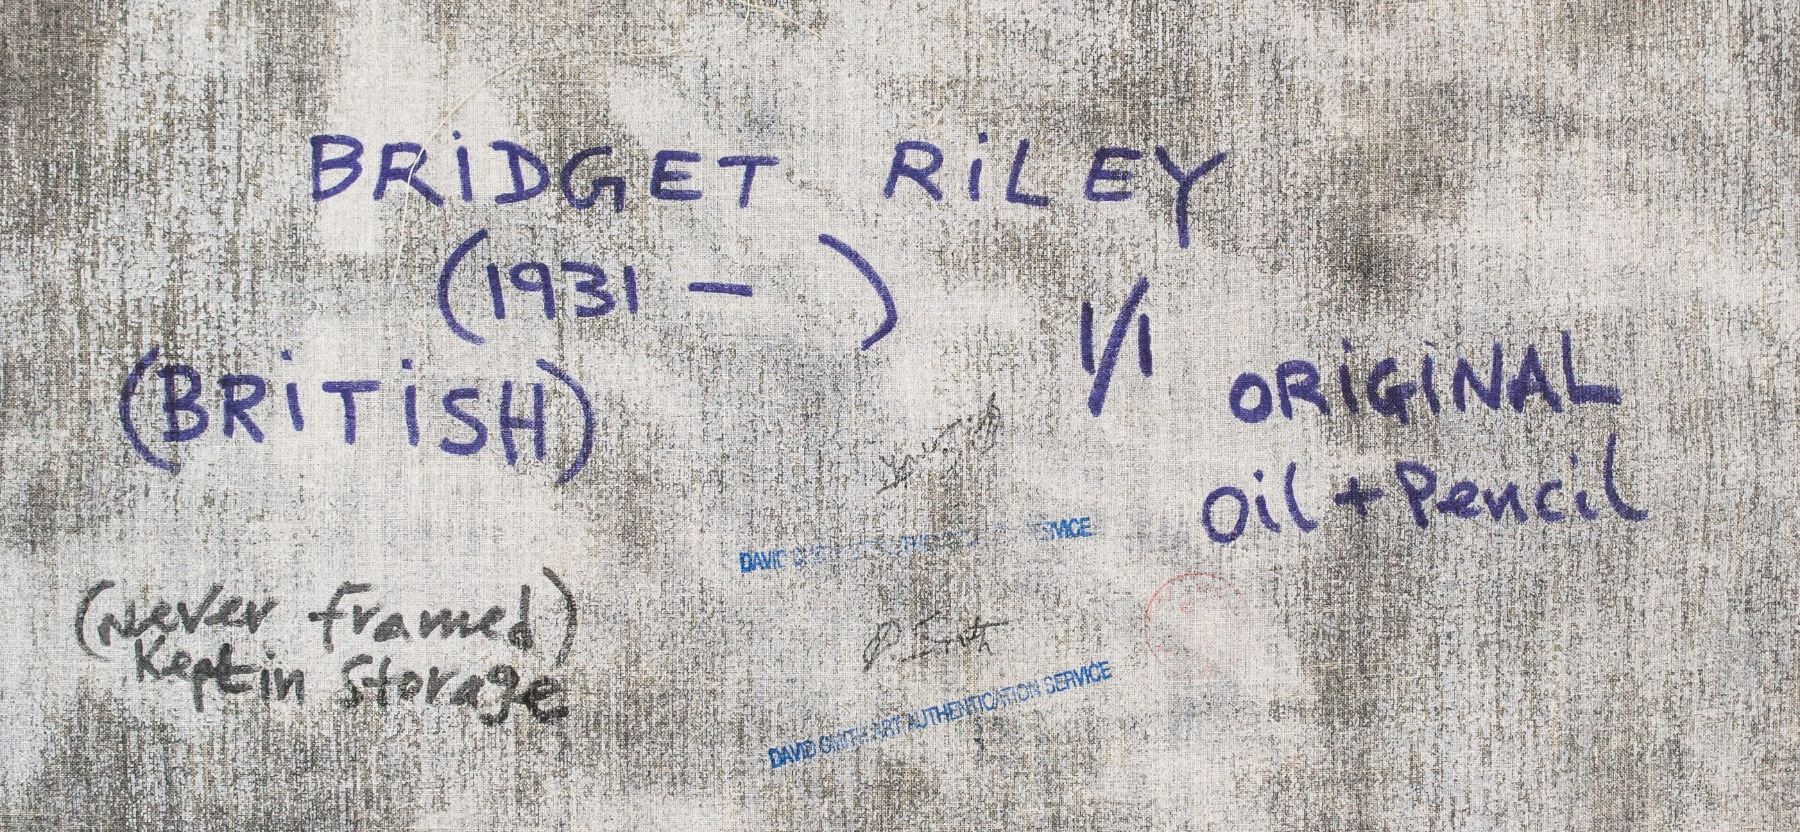 BRIDGET RILEY
(1931 - )
1/1
(BRITISH)
ORIGINAL
Oil + Pencil
DAVID SMITH ART AUTHENTICATION SERVICE
(Never framed)
Kept in Storage
D. Smith
DAVID SMITH ART AUTHENTICATION SERVICE